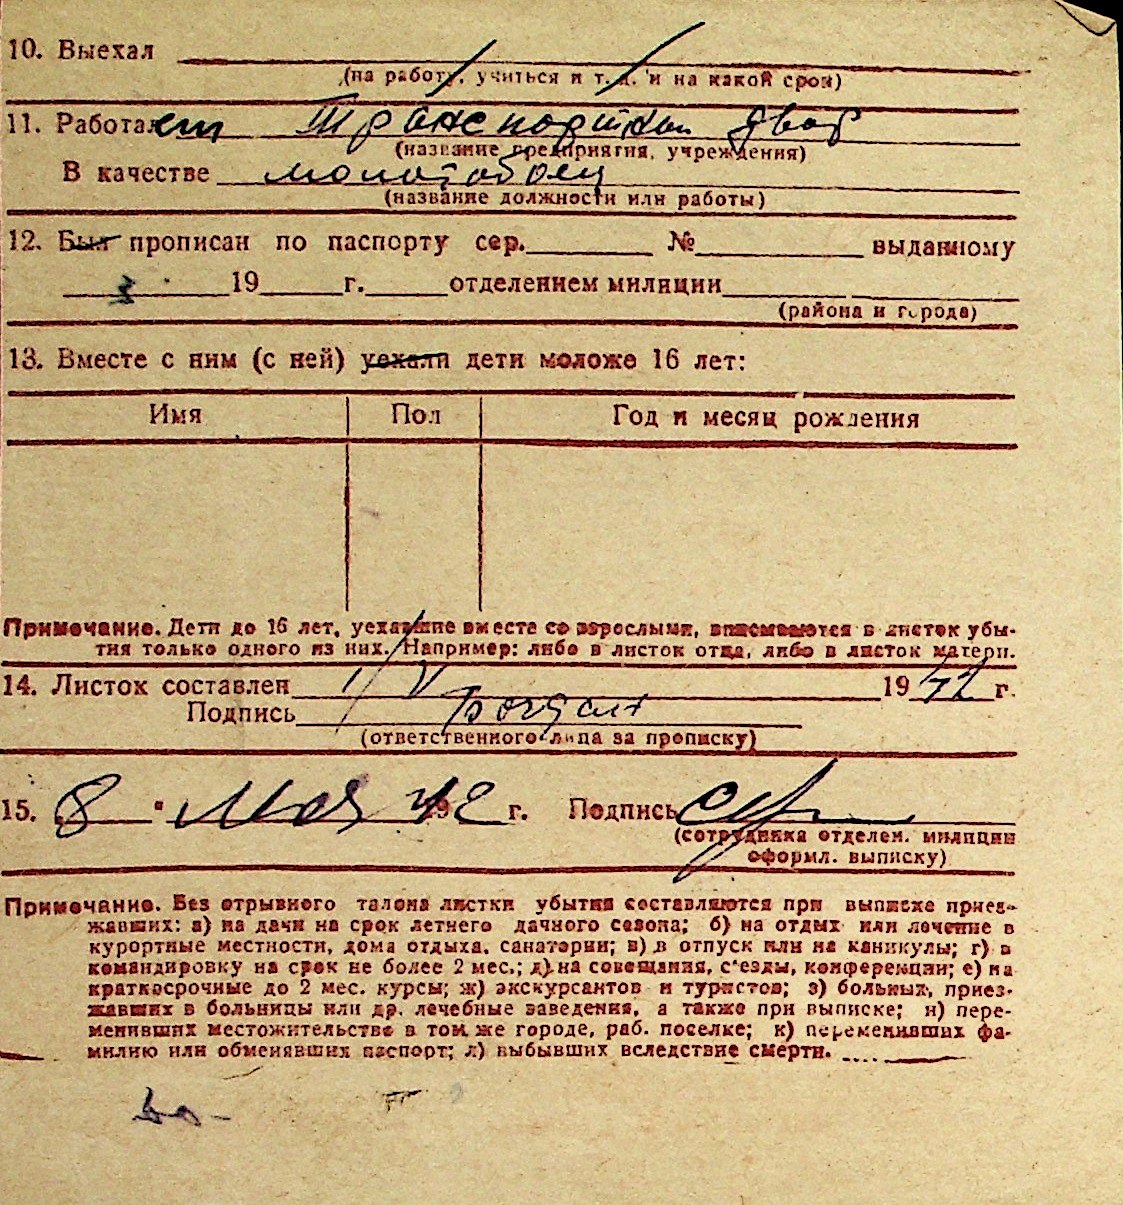 10. Выехал
(на работу, учиться и т. д. и на какой срок)
11. Работает Транспортный двор
(название предприятия, учреждения)
В качестве молотобоец
(название должности или работы)
12. Был прописан по паспорту сер. № выданному
19 г. отделением милиции
(района и города)
13. Вместе с ним (с ней) уехали дети моложе 16 лет:
Имя Пол Год и месяц рождения
Примечание. Дети до 16 лет, уехавшие вместе со взрослыми, вписываются в листок убы-
тия только одного из них. Например: либо в листок отца, либо в листок матери.
14. Листок составлен 1/V 1942 г.
Подпись
(ответственного лица за прописку)
15. 8 " Мая 1942 г. Подпись
(сотрудника отделен. милиции
оформл. выписку)
Примечание. Без отрывного талона листки убытия составляются при выписке приез-
жавших: а) на дачи на срок летнего дачного сезона; б) на отдых или лечение в
курортные местности, дома отдыха, санатории; в) в отпуск или на каникулы; г) в
командировку на срок не более 2 мес.; д) на совещания, с'езды, конференции; е) на
краткосрочные до 2 мес. курсы; ж) экскурсантов и туристов; з) больных, приез-
жавших в больницы или др. лечебные заведения, а также при выписке; и) пере-
менивших местожительство в том же городе, раб. поселке; к) переменивших фа-
милию или обменявших паспорт; л) выбывших вследствие смерти.